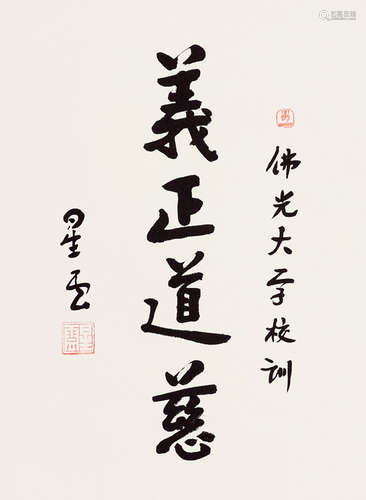 佛光大学校训
義正道慈
星云